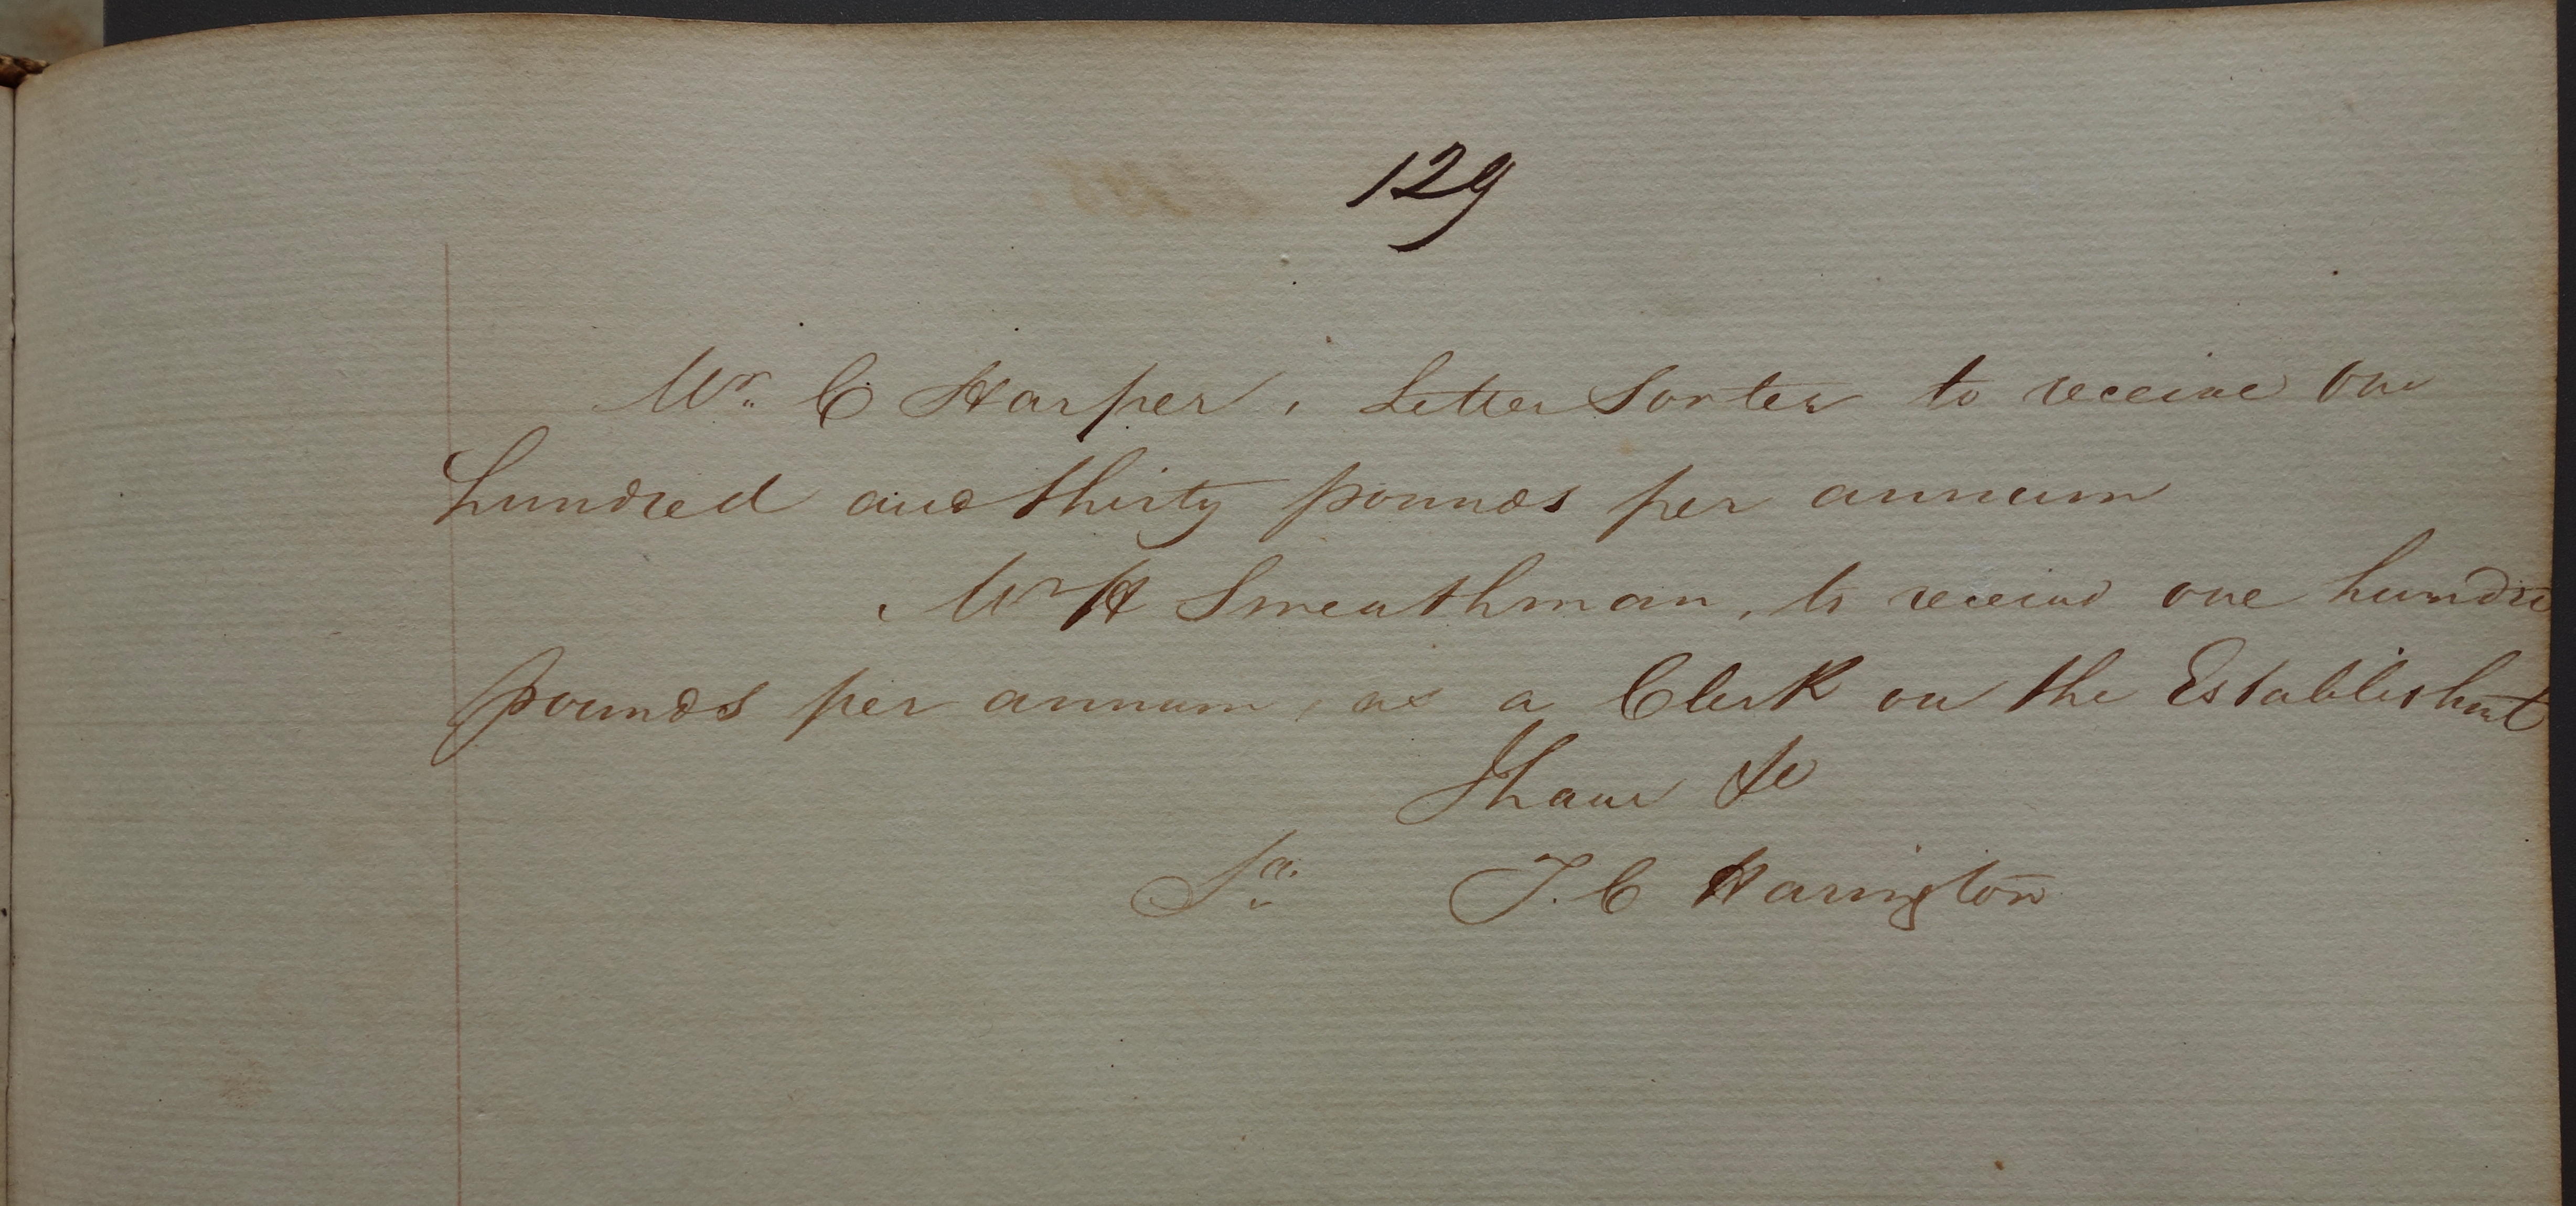 129
Mr. C Harper, Letter Sorter to receive one
hundred and thirty pounds per annum
Mr H Smeathman, to receive one hundred
pounds per annum, as a Clerk on the Establishmt
I have &c
T. C Harington